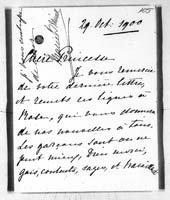 105
29 Oct. 1900
Chère Princesse
Je vous remercie
de votre dernière lettre,
et remets ces lignes à
qui vous donnera
de nos nouvelles à tous.
Les garçons sont on ne
peut mieux, Dieu merci,
gais, contents, sages, et